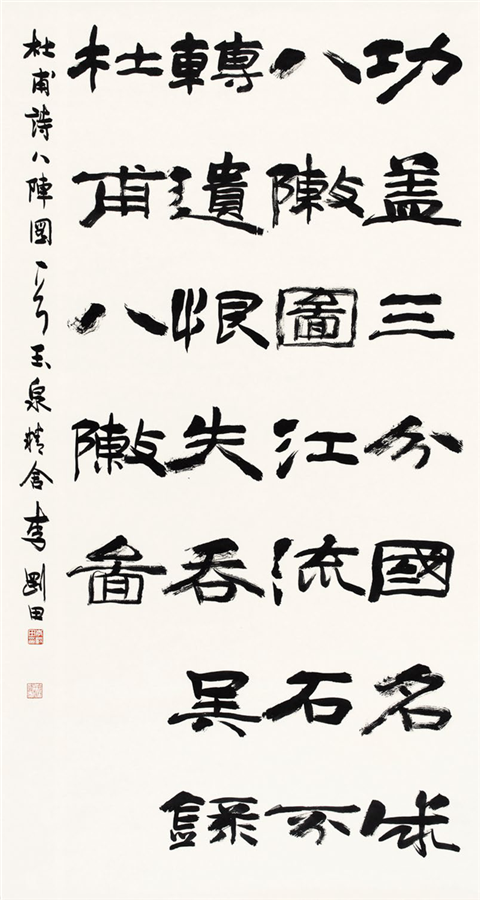 功盖三分國名成
八敶圖江流石不
轉遺恨失吞吴錄
杜甫八敶圖
杜甫詩八陣圖 玉泉精舍李剛田